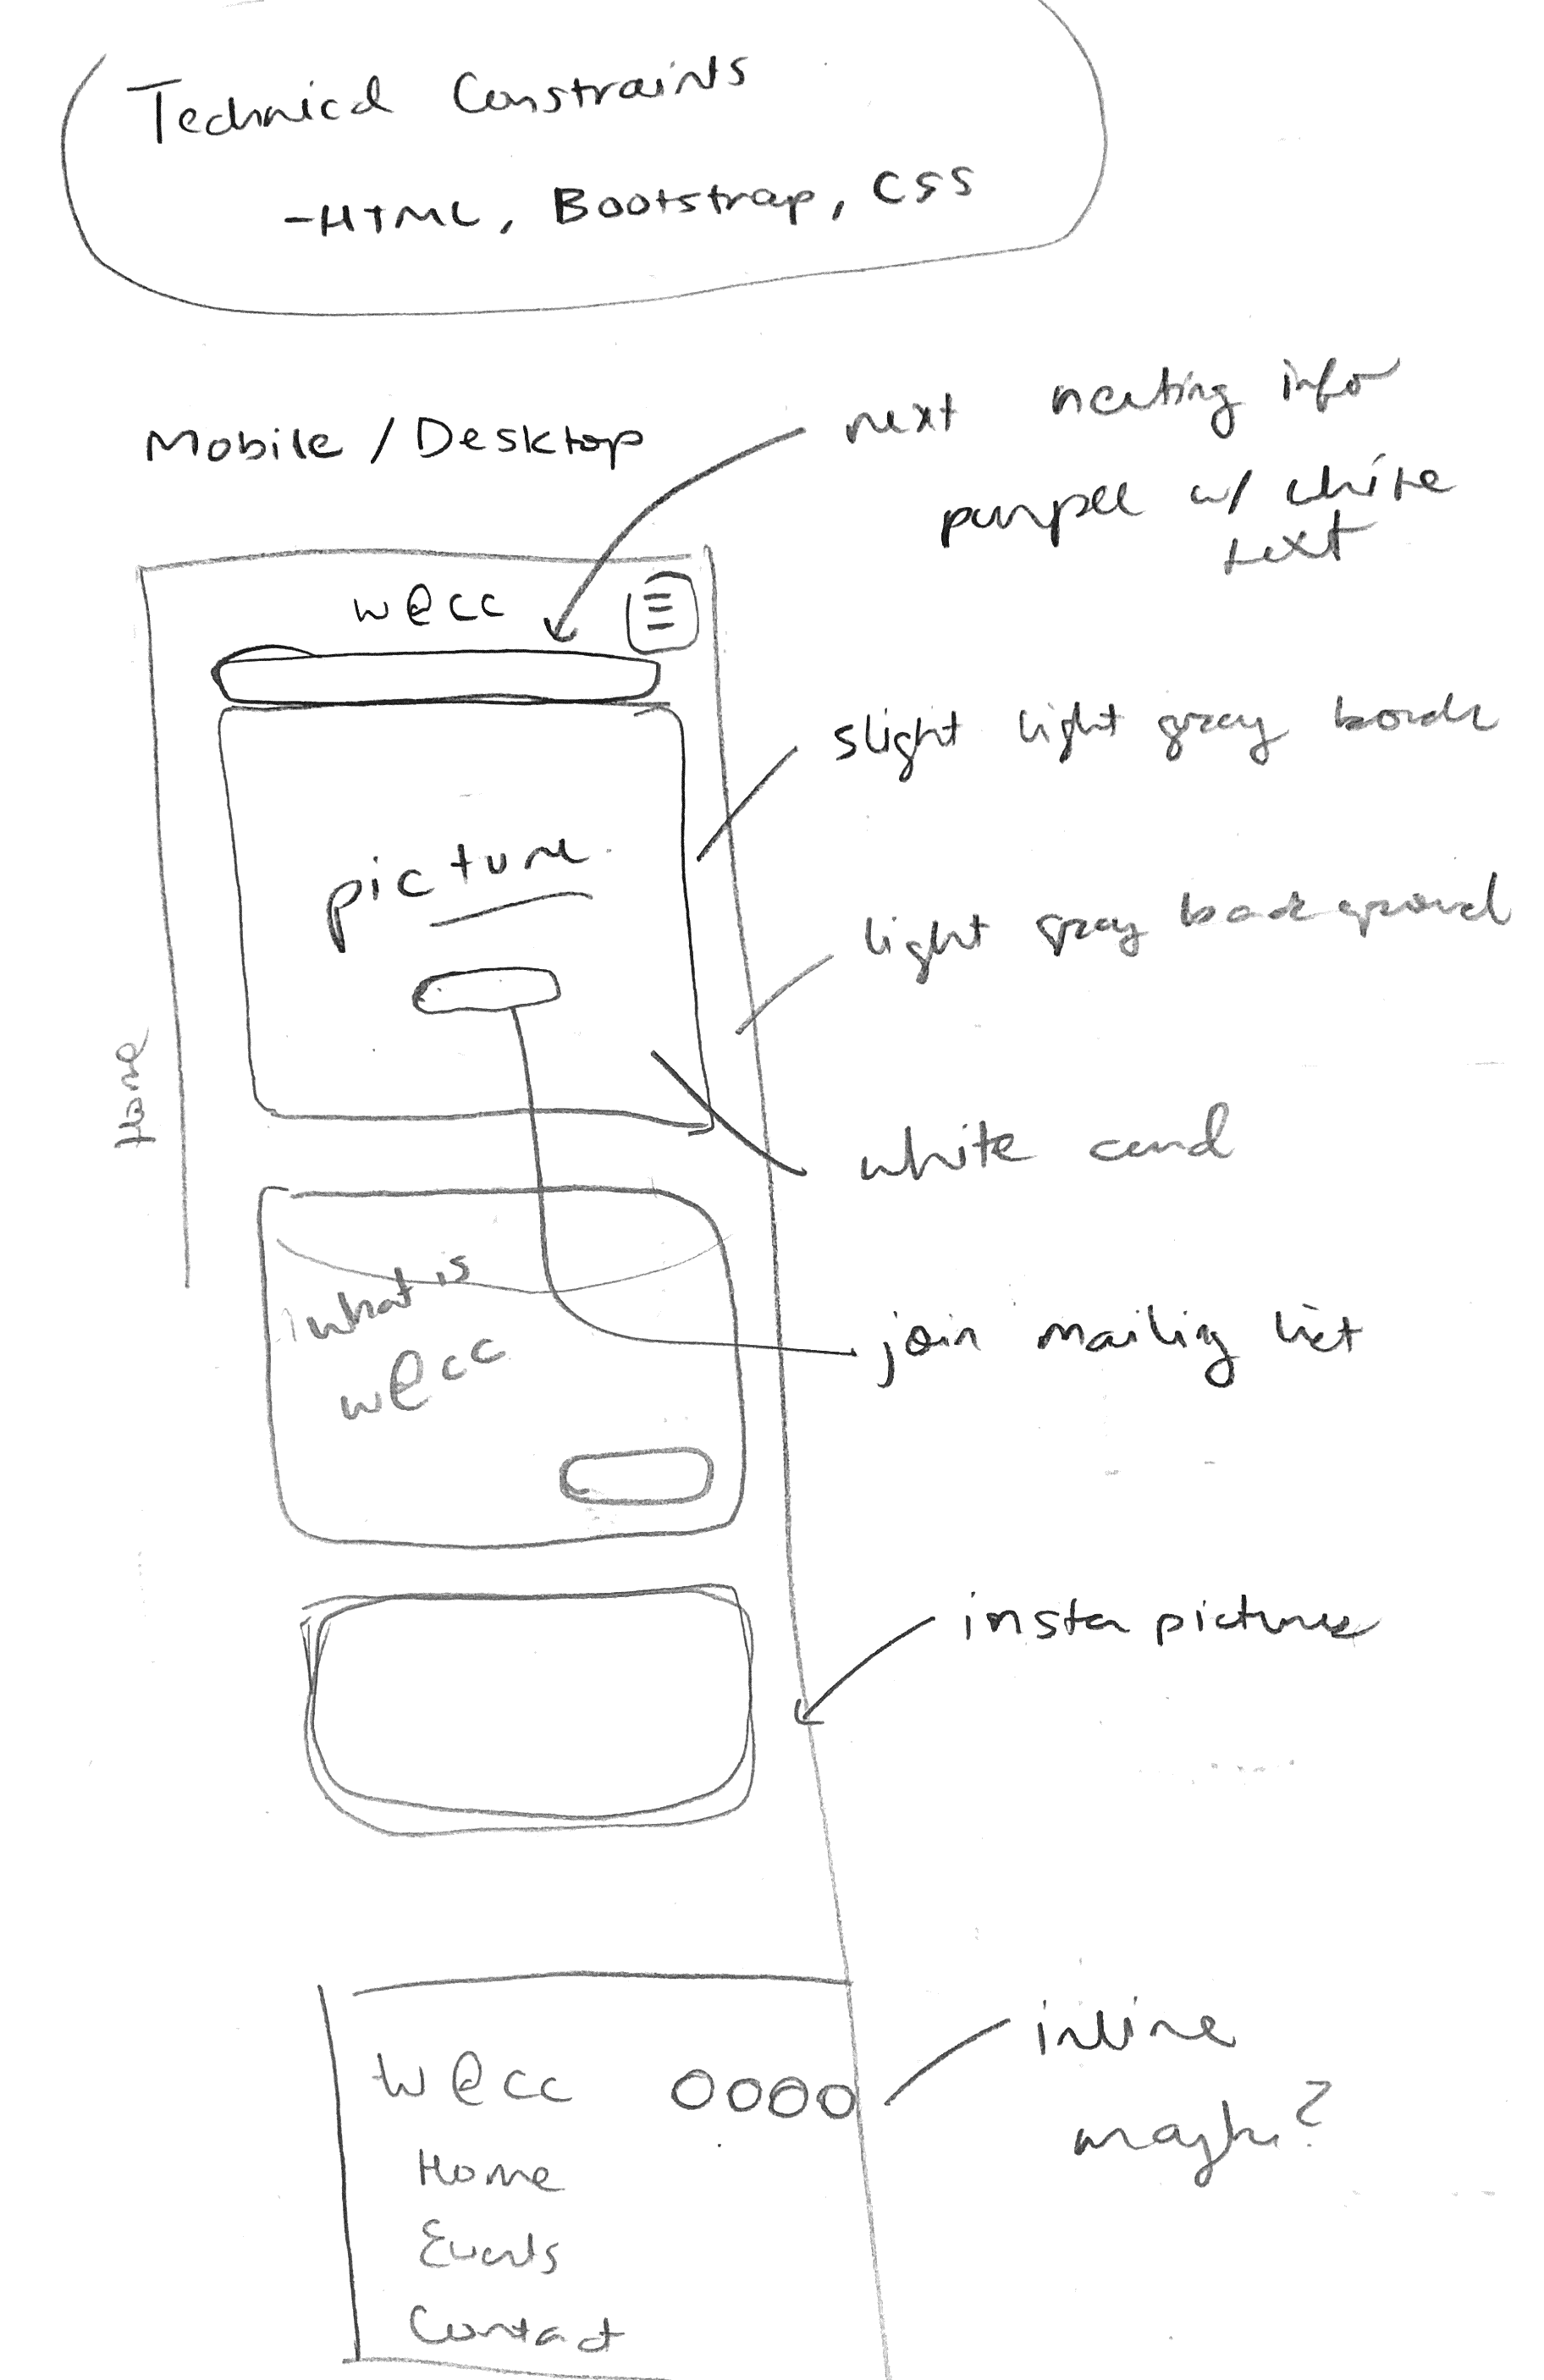 Technical Constraints
-HTML, Bootstrap, CSS
Mobile / Desktop
next meeting info
purple w/ white
text
w@cc
slight light gray border
picture
light gray background
Home
white card
what is
w@cc
join mailing list
insta pictures
w@cc
inline
maybe?
Home
Events
Contact